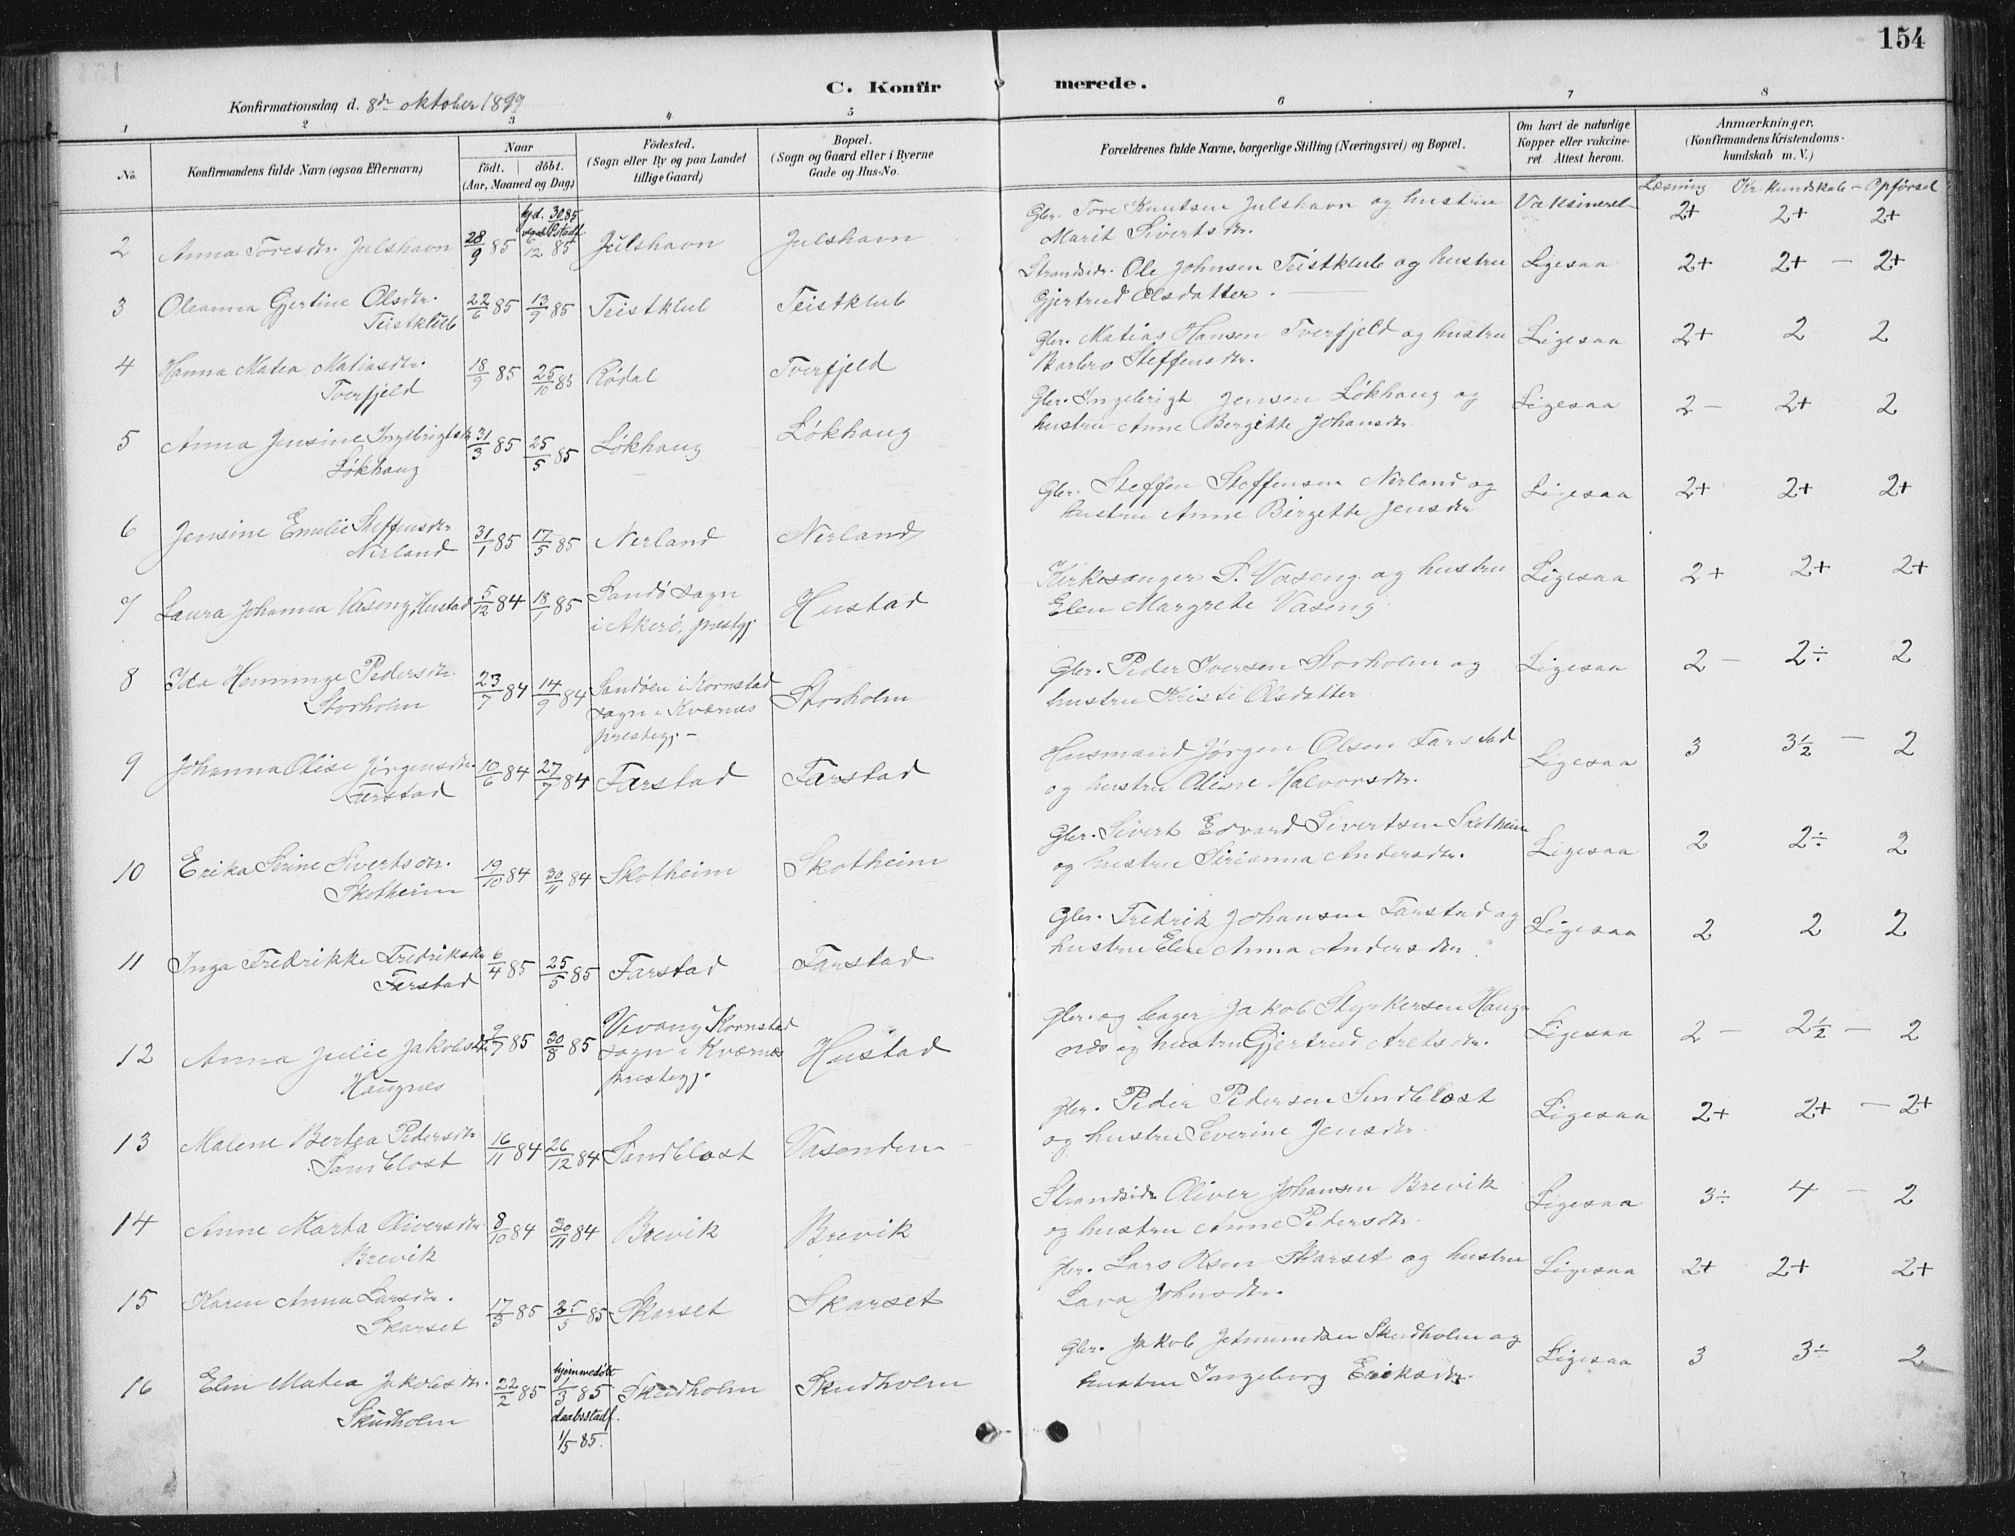 154
C. Konfirmerede.
Konfirmationsdag d. 8de oktober 1899
1 2 3 4 5 6 7 8
No.
Konfirmandens fulde Navn (ogsaa Efternavn)
Naar
født. døbt.
(Aar, Maaned og Dag)
Fødested.
(Sogn eller By og paa Landet
tillige Gaard)
Bopæl.
(Sogn og Gaard eller i Byerne
Gade og Hus-No.
Forældrenes fulde Navne, borgerlige Stilling (Næringsvei) og Bopæl.
Om havt de naturlige
Kopper eller vakcine-
ret Attest herom.
Anmærkninger,
(Konfirmandens Kristendoms-
kundskab m. V.)
Læsning Kr. kundskab - Opførsel
2 Anna Toresdtr. Julshavn 28/9 85 6/12 85 Julshavn Julshavn
Gbr. Tore Knutsen Julshavn og hustru Vaksineret 2+ 2+ 2+
Marit Sivertsdtr.
3 Oleanna Gjertine Olsdtr. 22/6 85 13/9 85 Teistklub Teistklub
Teistklub
Strandsidr. Ole Johnsen Teistklub og hustru Ligesaa 2+ 2+ - 2+
Gjertrud Olsdatter.
4 Hanna Matea Matiasdtr. 18/9 85 25/10 85 Rødal Tverfjeld
Tverfjeld
Gbr. Matias Hansen Tverfjeld og hustru Ligesaa 2+ 2 2
Barbro Steffensdtr.
5 Anna Jensine Ingebrigtsdtr. 31/3 85 25/5 85 Løkhaug Løkhaug
Løkhaug
Gbr. Ingebrigt Jensen Løkhaug og Ligesaa 2 - 2+ 2
hustru Anne Bergitte Johansdtr.
6 Jensine Emelie Steffensdtr 31/1 85 17/5 85 Nerland Nerland
Nerland
Gbr. Steffen Steffensen Nerland og Ligesaa 2+ 2+ 2+
hustru Anne Birgitte Jensdtr
7 Laura Johanna Vaseng, Hustad 5/12 84 18/1 85 Sandø sogn Hustad
i Akerø prestgj.
Kirkesanger P. Vaseng og hustru Ligesaa 2+ 2+ 2+
Elen Margrete Vaseng.
8 Ida Henninge Pedersdtr. 23/7 84 14/9 84 Sandøen i Kornstad Storholm
Storholm sogn i Kværnes
prestegj. -
Gbr. Peder Iversen Storholm og Ligesaa 2 - 2÷ 2
hustru Kristi Olsdatter
9 Johanna Olise Jørgensdtr. 10/6 84 27/7 84 Farstad Farstad
Farstad
Husmand Jørgen Olsen Farstad Ligesaa 3 3½ - 2
og hustru Oline Halvorsdtr.
10 Erika Serine Sivertsdtr. 19/10 84 30/11 84 Skotheim Skotheim
Skotheim
Gbr. Sivert Edvard Sivertsen Skotheim Ligesaa 2 2÷ 2
og hustru Sirianna Andersdtr.
11 Inga Fredrikke Fredriksdtr 6/4 85 25/5 85 Farstad Farstad
Farstad
Gbr. Fredrik Johansen Farstad og Ligesaa 2 2 2
hustru Eline Anna Andersdtr.
12 Anna Julie Jakobsdtr 9/7 85 30/8 85 Vevang Kornstad Hustad
Haugnes sogn i Kværnes
prestegj.
Gbr. og Bager Jakob Styrkersen Haug- Ligesaa 2 - 2½ - 2
nes og hustru Gjertrud Aretsdtr.
13 Malene Bertea Pedersdtr 16/11 84 26/12 84 Sandblost Vasenden
Sandblost
Gbr. Peder Pedersen Sandblost Ligesaa 2+ 2+ - 2+
og hustru Severine Jensdtr.
14 Anne Marta Oliversdtr 8/10 84 30/11 84 Brevik Brevik
Brevik
Strandsidr Oliver Johansen Brevik Ligesaa 3÷ 4 - 2
og hustru Anne Pedersdtr.
15 Karen Anna Larsdtr. 17/3 85 25/5 85 Skarset Skarset
Skarset
Gbr. Lars Olsen Skarset og hustru Ligesaa 2+ 2+ 2+
Lava Johnsdtr.
16 Elen Matea Jakobsdtr. 22/2 85 hjemmedøbt 1/3 85 Skudholm Skudholm
Skudholm daabsstadf.
1/5 85.
Gbr. Jakob Jetmundsen Skudholm og Ligesaa 3 3÷ 2
hustru Ingeborg Eriksdtr.